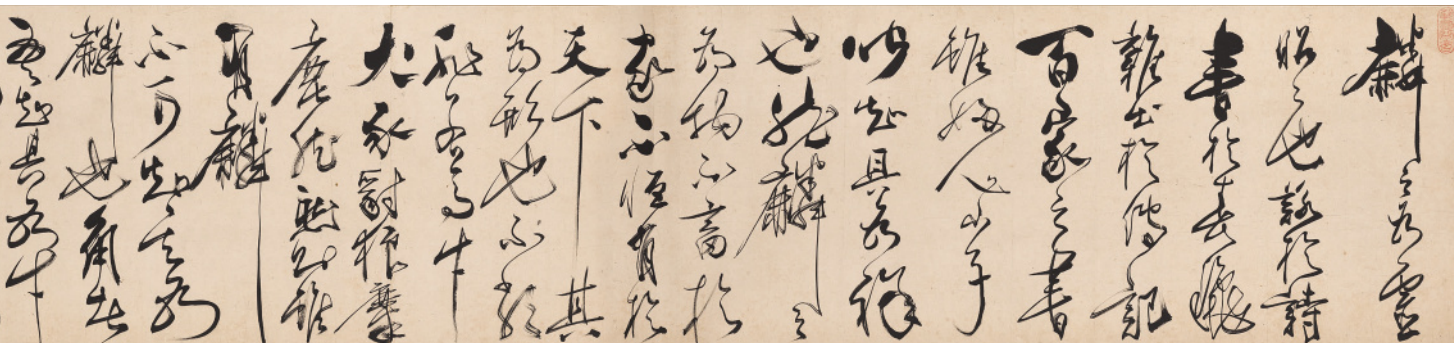 麟之為靈
昭〻也詠於詩
書於春秋
雜出於傳記
百家之書
雖婦人小子
皆知其為祥
也然麟之
為物不畜於
家不恒有於
天下其
為形也不類
非若馬牛
犬豕豺狼麋
鹿然然則雖
有麟
不可知其為
麟也角者
吾知其為牛